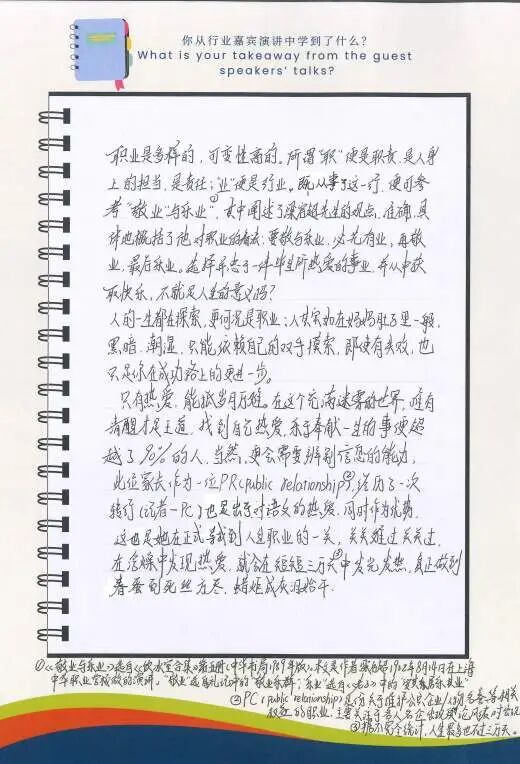 你从行业嘉宾演讲中学到了什么?
What is your takeaway from the guest
speakers' talks?
职业是多样的,可变性高的。所谓“职”便是职责,是人身
上的担当,是责任;“业”便是行业。既从事了这一行,便可参
考“敬业”与乐业”①,文中阐述了梁启超先生的观点,准确、具
体地概括了他对职业的看法:要敬与乐业,必先有业,再敬
业,最后乐业。选择并忠于一件毕生所热爱的事业,并从中获
取快乐,不就是人生的意义吗?
人的一生都在探索,更何况是职业;人其实如在妈妈肚子里一般,
黑暗、朝湿,只能依赖自己的双手摸索,即使有失败,也
只是你在成功路上的更进一步。
只有热爱,能抵岁月万难。在这个充满迷雾的世界,唯有
清醒才是王道,找到自己热爱,乐于奉献一生的事便超
越了90%的人,当然,更会需要辨别信息的能力。
此位家长作为一位PR(public relationship)②,经历了一次
转行(记者—PC)也是出于对语文的热爱,同时作为优势,
这也是她在正式寻找到人生职业的一关,关关难过关关过,
在磨炼中发现热爱,就会在短短三万天③中发光发热,真正做到
春蚕到死丝方尽,蜡炬成灰泪始干.
①《敬业与乐业》选自《饮冰室合集》第五册(中华书局1989年版)。本文是作者 1922年8月14日在上海
中华职业学校做的演讲。“敬业”是《礼记》中的“敬业乐群”;“乐业”选自《老子》中的“安其居乐其业”
②PC(public relationship)是份关于维护公众企业/人物名誉等相关
权益的职业,主要关注于名人名企出现舆论风波时的
③据不完全统计,人生最多也不过三万天。